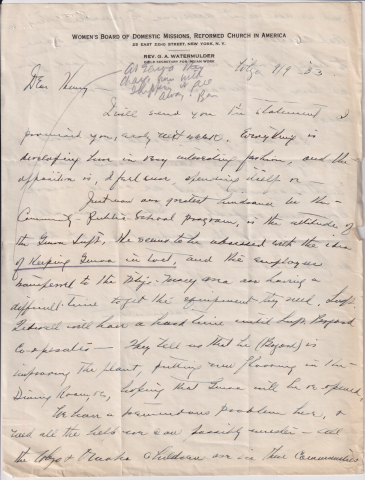 WOMEN'S BOARD OF DOMESTIC MISSIONS, REFORMED CHURCH IN AMERICA
25 EAST 22ND STREET, NEW YORK, N. Y.
REV. G. A. WATERMULDER
FIELD SECRETARY FOR INDIAN WORK
9 33
Dear Henry -
I will send you the statement I
promised you, early next week. Everything is
developing here in very interesting fashion, and the
opposition is, I feel sure, spending itself or -
Just now our greatest hindrance in the
Community - Public School program, is the attitude of
the Genoa Supt. He seems to be obsessed with the idea
of Keeping Genoa in tact, and the employees
transferred to the Wbgo-Macy area are having a
difficult time to get the equipment they need. Supt.
will have a hard time until Supt. Bryard
Co-operates - They tell us that he (Bryard) is
improving the plant, putting new flooring in the
Dining Room etc, hoping that Genoa will be re-opened,
We have a tremendous problem here, &
need all the help we can possibly muster - all
the Wbgo & Omaha children are in their Communities